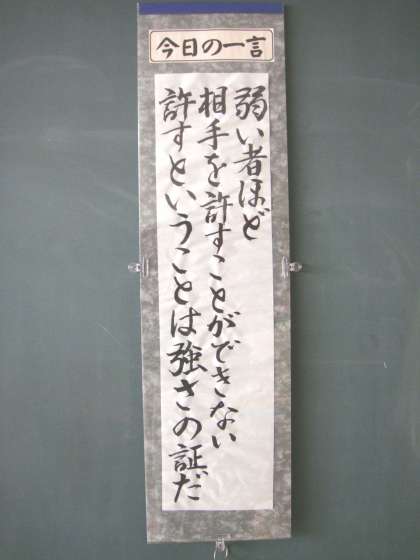 今日の一言
弱い者ほど
相手を許すことができない
許すということは強さの証だ